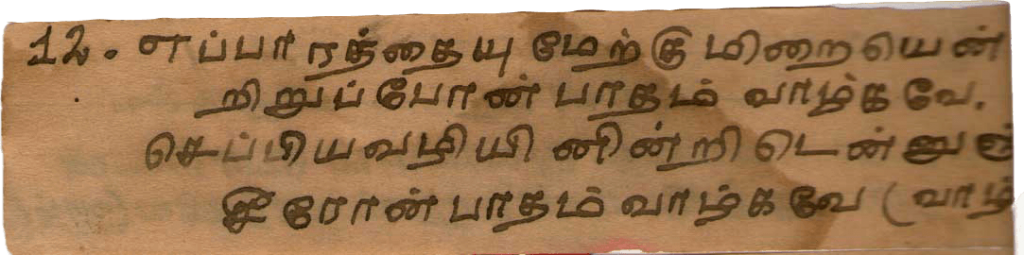 12. எப்பாரத்தையு மேற்கு மிறையென்
றிறுப்போன் பாதம் வாழ்க வே.
செப்பியவழியி னின்றி டென்னு
சீரோன் பாதம் வாழ்க வே (வாழ்